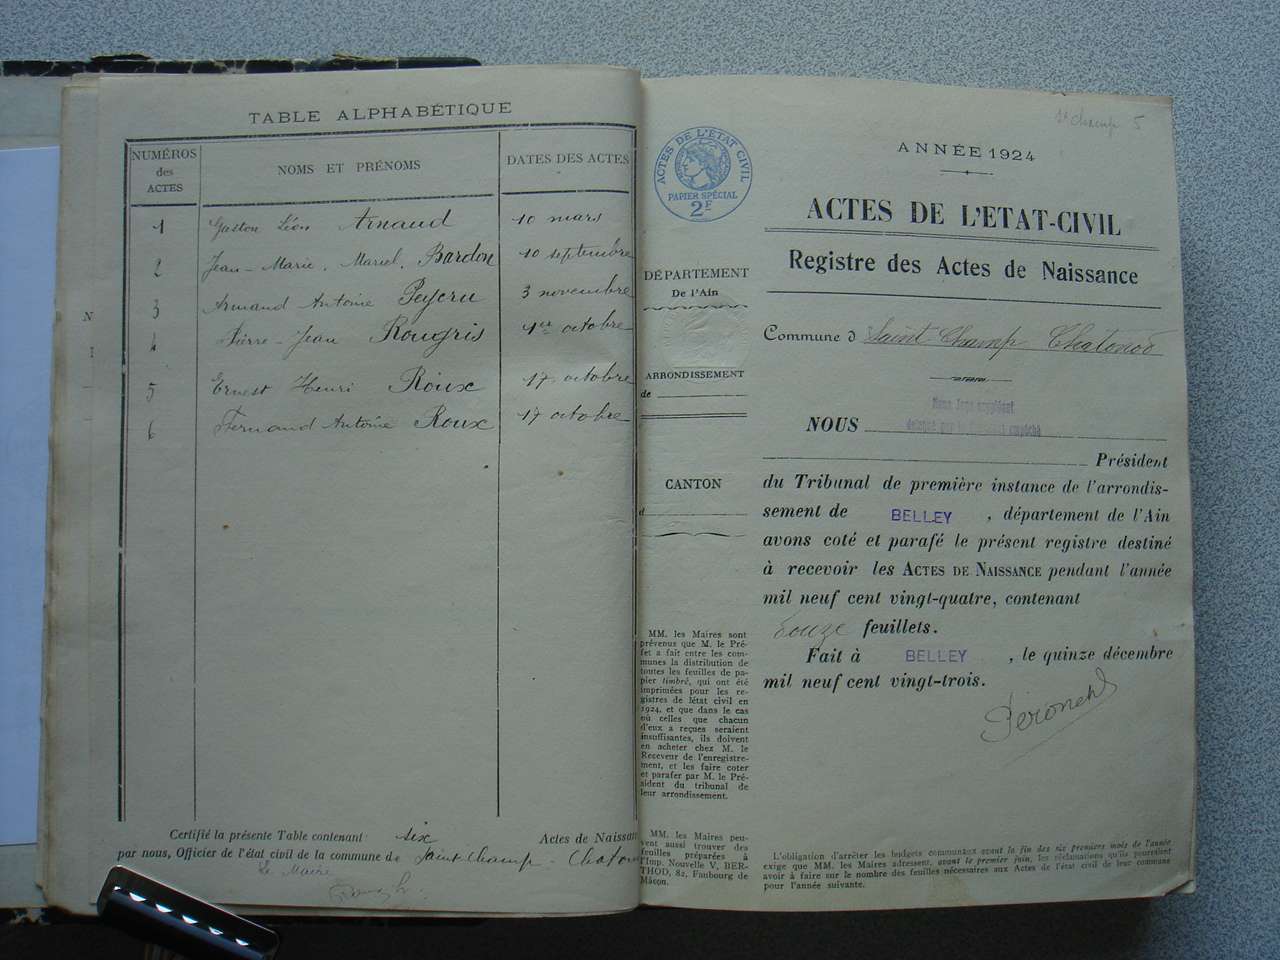 TABLE ALPHABÉTIQUE
NUMÉROS
des
ACTES
NOMS ET PRÉNOMS
DATES DES ACTES
1 Gaston Léon Arnaud 10 mars
2 Jean-Marie, Marcel, Bardon 10 septembre
3 Armand Antoine Peyeru 3 novembre
4 Pierre-Jean Rougris 1er octobre
5 Ernest Henri Roux 17 octobre
6 Fernand Antoine Roux 17 octobre
Certifié la présente Table contenant six Actes de Naissan
par nous, Officier de l'état civil de la commune de Saint Champ-Chaton
Le Maire
St Champ 5
ACTES DE L'ÉTAT CIVIL
PAPIER SPÉCIAL
2F
DÉPARTEMENT
De l'Ain
ARRONDISSEMENT
de
CANTON
d
MM. les Maires sont
prévenus que M. le Pré-
fet a fait entre les com-
munes la distribution de
toutes les feuilles de pa-
pier timbré, qui ont été
imprimées pour les re-
gistres de létat civil en
1924, et que dans le cas
où celles que chacun
d'eux a reçues seraient
insuffisantes, ils doivent
en acheter chez M. le
Receveur de l'enregistre-
ment, et les faire coter
et parafer par M. le Pré-
sident du tribunal de
leur arrondissement.
MM. les Maires peu-
vent aussi trouver des
feuilles préparées à
l'Imp. Nouvelle V, BER-
THOD, 82, Faubourg de
Mâcon.
ANNÉE 1924
ACTES DE L'ETAT-CIVIL
Registre des Actes de Naissance
Commune d Saint Champ Chatonod
NOUS Nous Juge suppléant
délégué par le Président empêché
Président
du Tribunal de première instance de l'arrondis-
sement de BELLEY, département de l'Ain
avons coté et parafé le présent registre destiné
à recevoir les ACTES DE NAISSANCE pendant l'année
mil neuf cent vingt-quatre, contenant
feuillets.
Fait à BELLEY, le quinze décembre
mil neuf cent vingt-trois.
L'obligation d'arrêter les budgets communaux avant la fin des six premiers mois de l'année
exige que MM. les Maires adressent, avant le premier juin, les réclamations qu'ils pourraient
avoir à faire sur le nombre des feuilles nécessaires aux Actes de l'état civil de leur commune
pour l'année suivante.